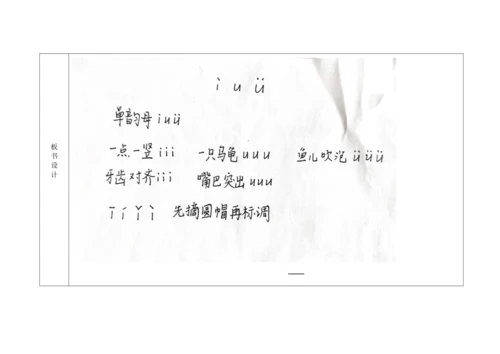 板书设计
i u ü
单韵母 i u ü
一点一竖 i i i 一只乌龟 u u u 鱼儿吹泡 ü ü ü
牙齿对齐 i i i 嘴巴突出 u u u
ī í ǐ ì 先摘圆帽再标调